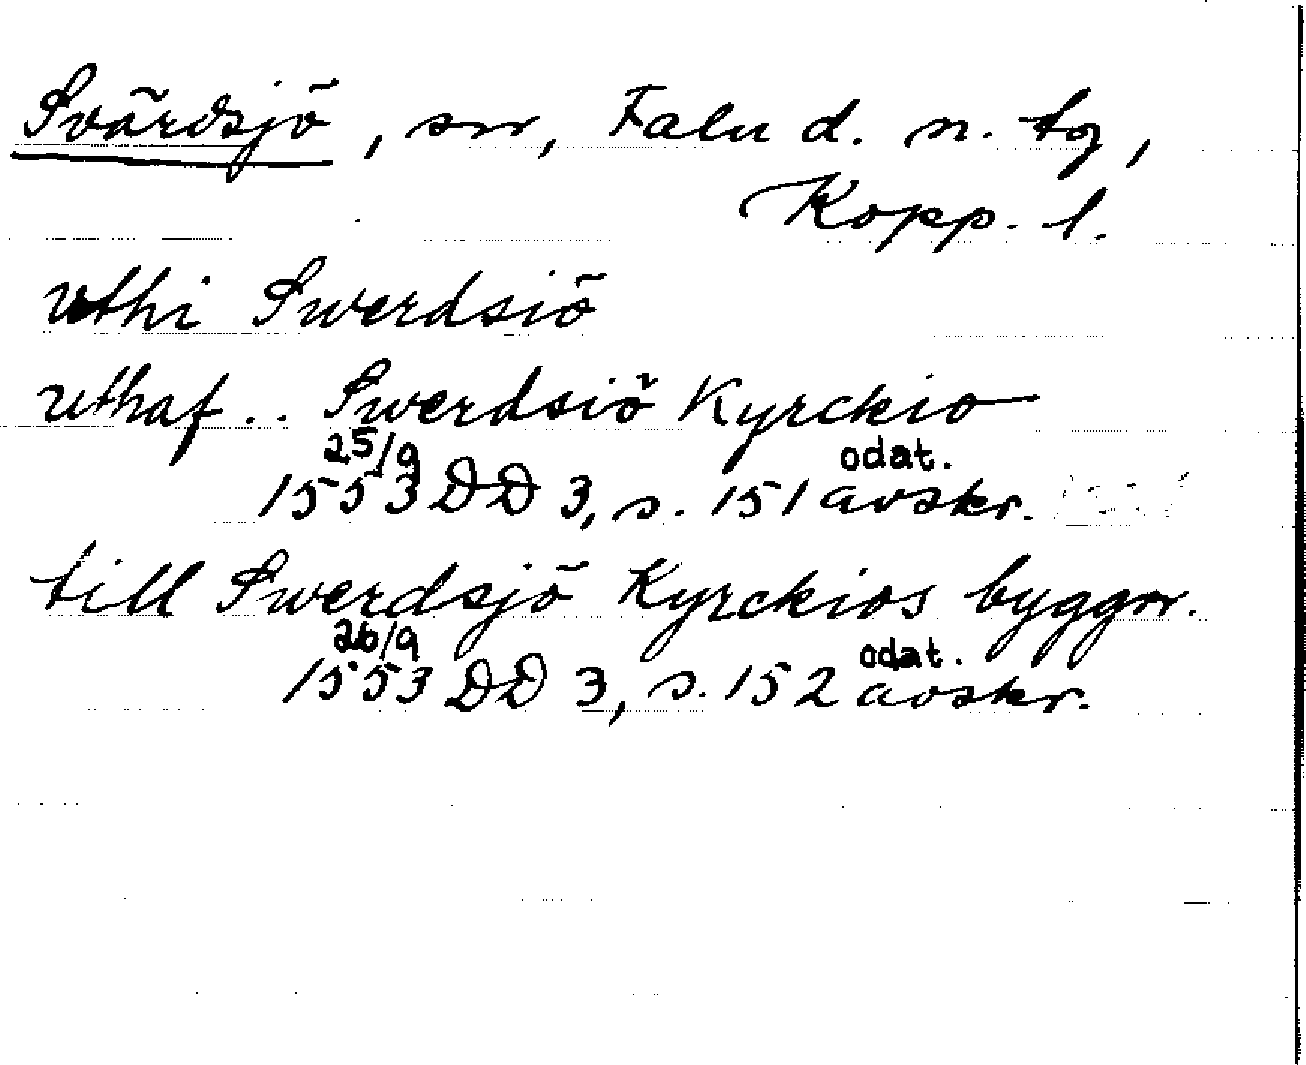 Svärdsjö, sn, Falu d. n. tg,
Kopp. l.
uthi Swerdsiö
uthaf.. Swerdsiö Kyrckio
25/9 1553 DD 3, s. 151 odat. avskr.
till Swerdsjö Kyrckios byggnr.
26/9 1553 DD 3, s. 152 odat. avskr.